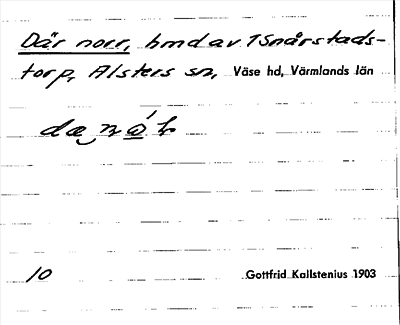 Där norr, hmd av TSnårstads-
torp, Alsters sn, Väse hd, Värmlands län
10 Gottfrid Kallstenius 1903